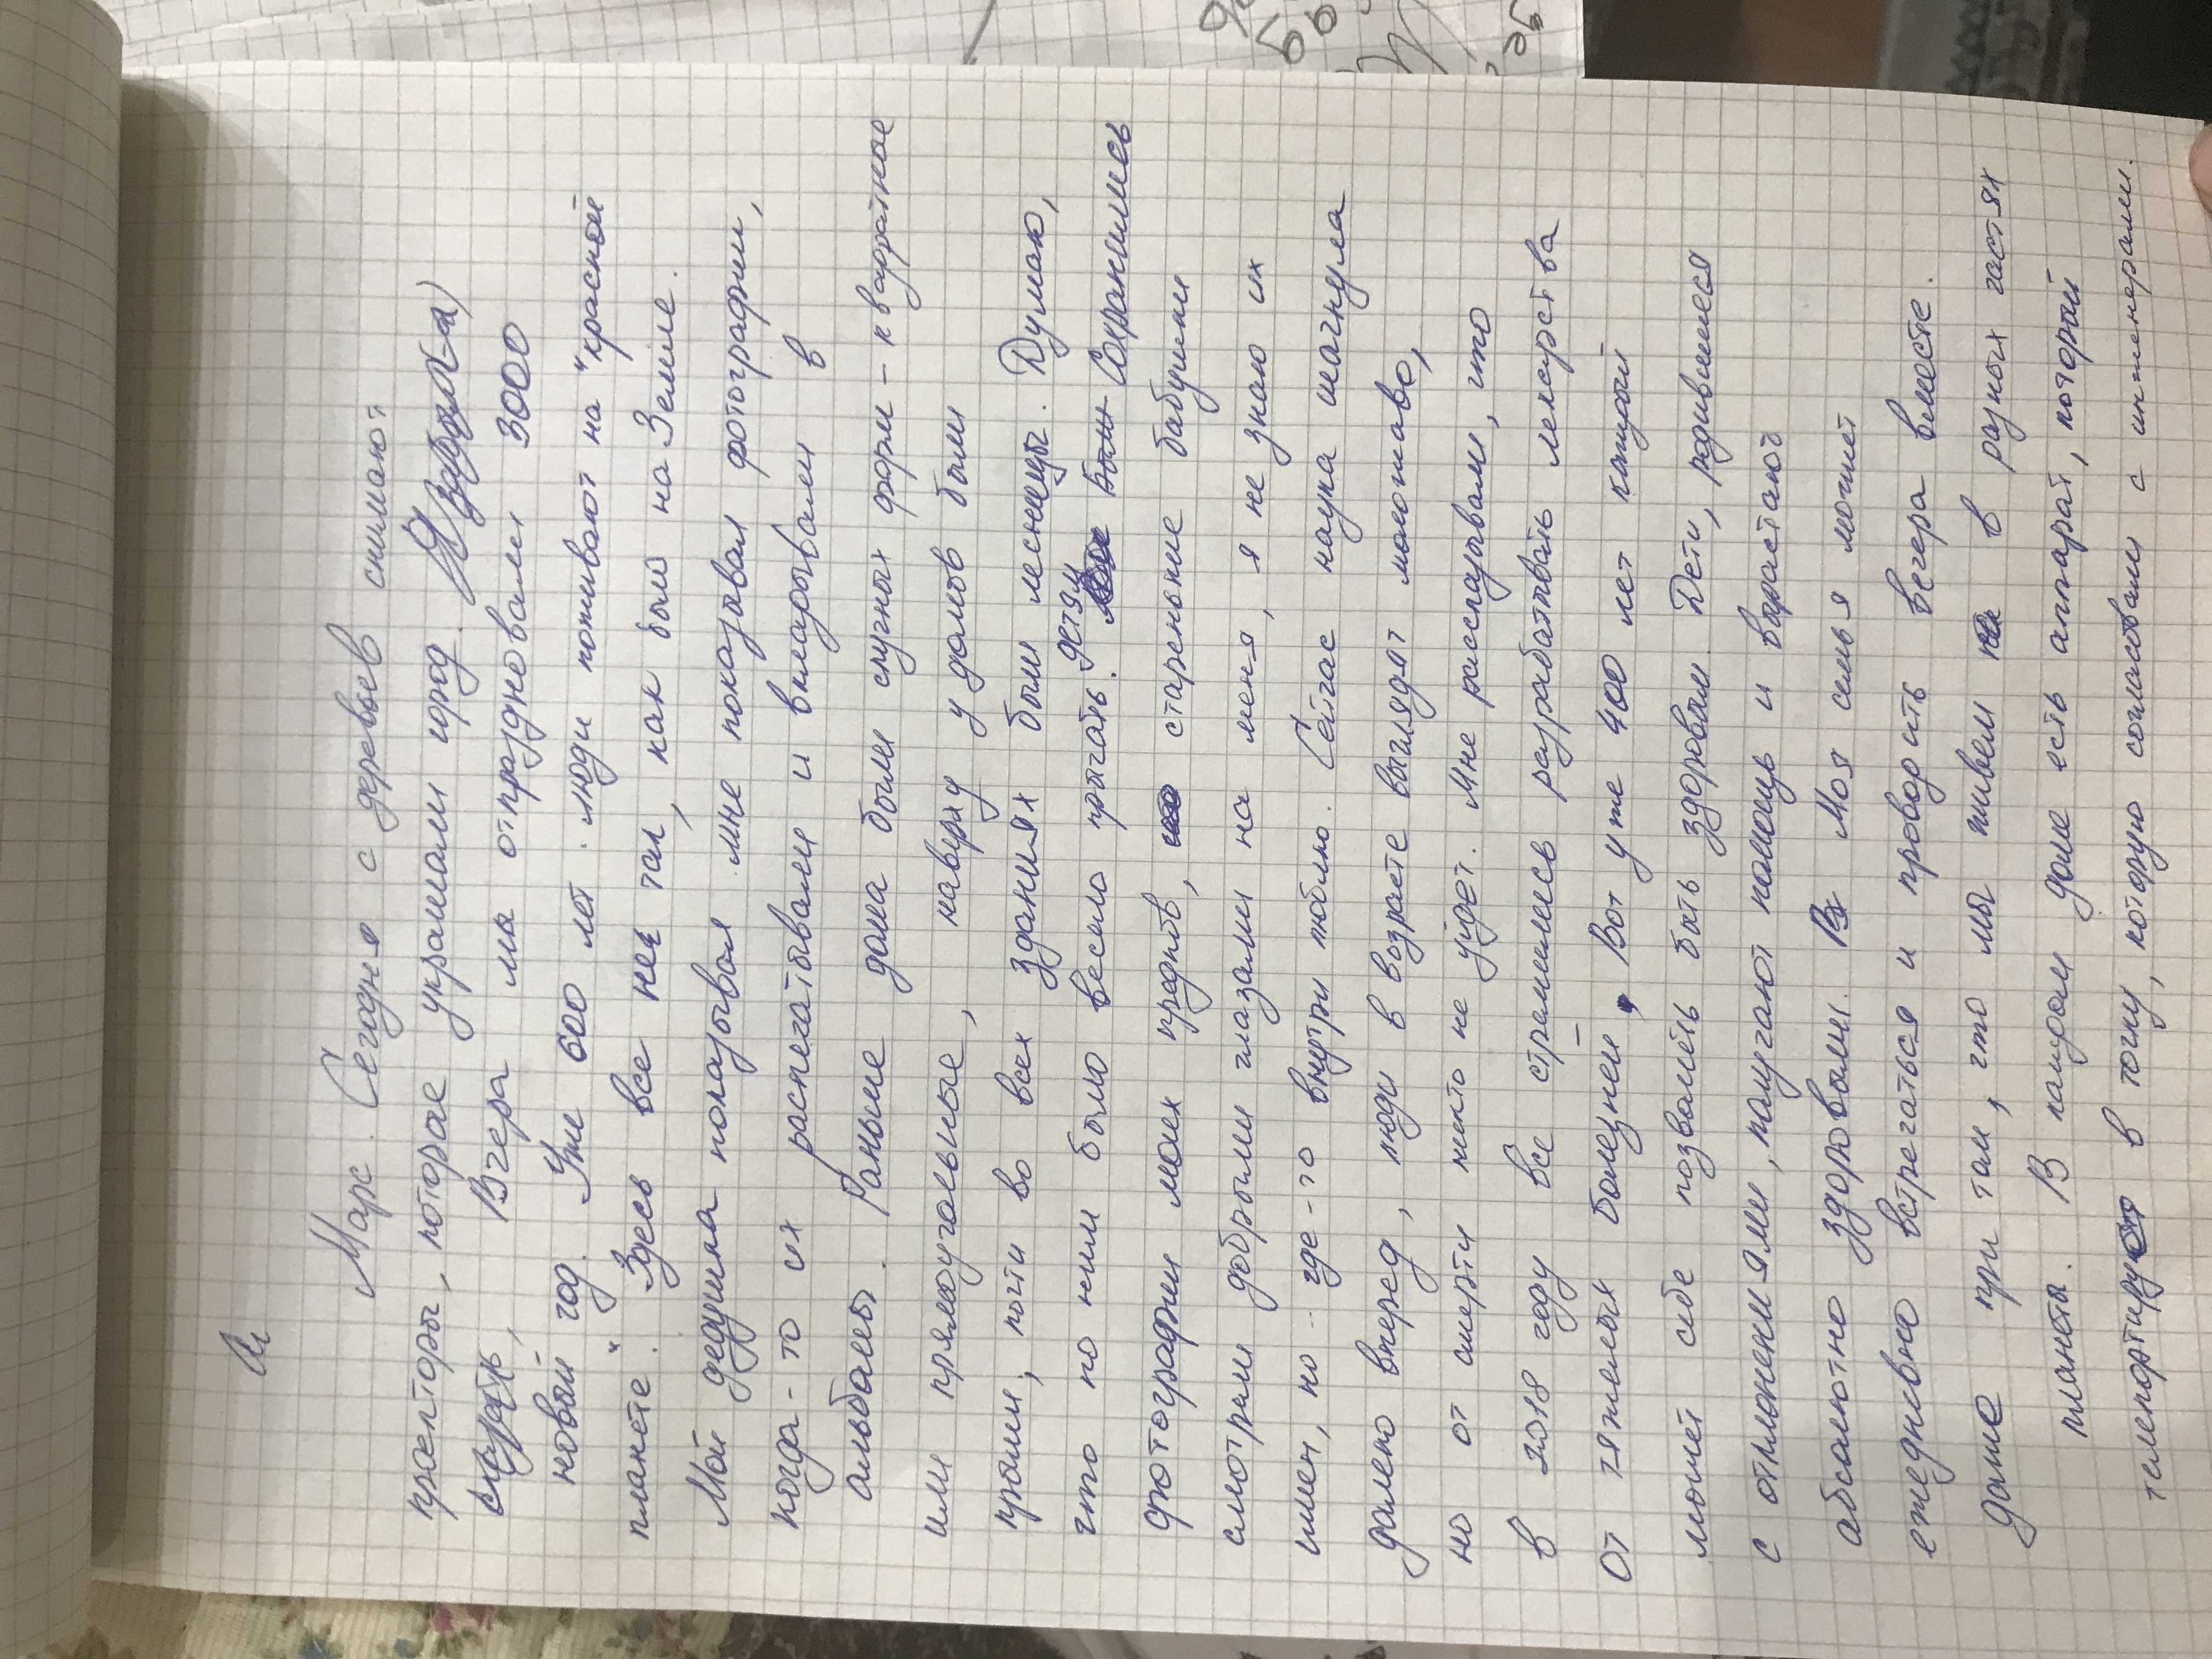 Марс. Сегодня с деревьев снимают
проекторы, которые украшали город. Я забыла
сказать, Вчера мы отпраздновали 3000
новый год. Уже 600 лет люди поживают на "красной
планете". Здесь все не так, как было на Земле.
Мой дедушка показывал мне показывал фотографии,
когда-то их распечатывали и вкладывали в
альбомы. Раньше дома были скучных форм - квадратные
или прямоугольные, наверху у домов были
крыши, почти во всех зданиях были лестницы. Думаю,
что по ним было весело прыгать детям. Сохранились
фотографии моих предков, старенькие бабушки
смотрят добрыми глазами на меня, я не знаю их
имен, но где-то внутри люблю. Сейчас наука шагнула
далеко вперед, люди в возрасте выглядят молодо,
но от смерти никто не уйдет. Мне рассказывали, что
в 2018 году все стремились разрабатывать лекарства
От тяжелых болезней, Вот уже 400 лет каждый
может себе позволить быть здоровым. Дети, родившиеся
с отклонениями, получают помощь и вырастают
абсолютно здоровыми. Моя семья может
ежедневно встречаться и проводить вечера вместе.
Даже при том, что мы живем в разных частях
планеты. В каждом доме есть аппарат, который
телепортирует в точку, которую согласовали с инженерами.